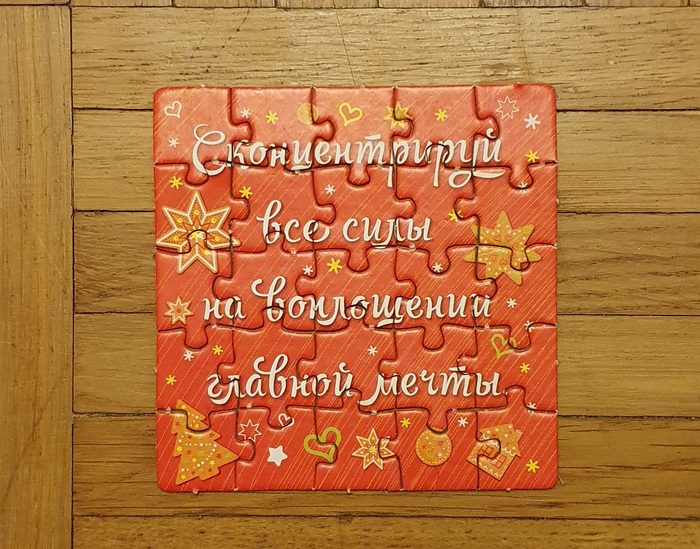 Сконцентрируй
все силы
на воплощении
главной мечты